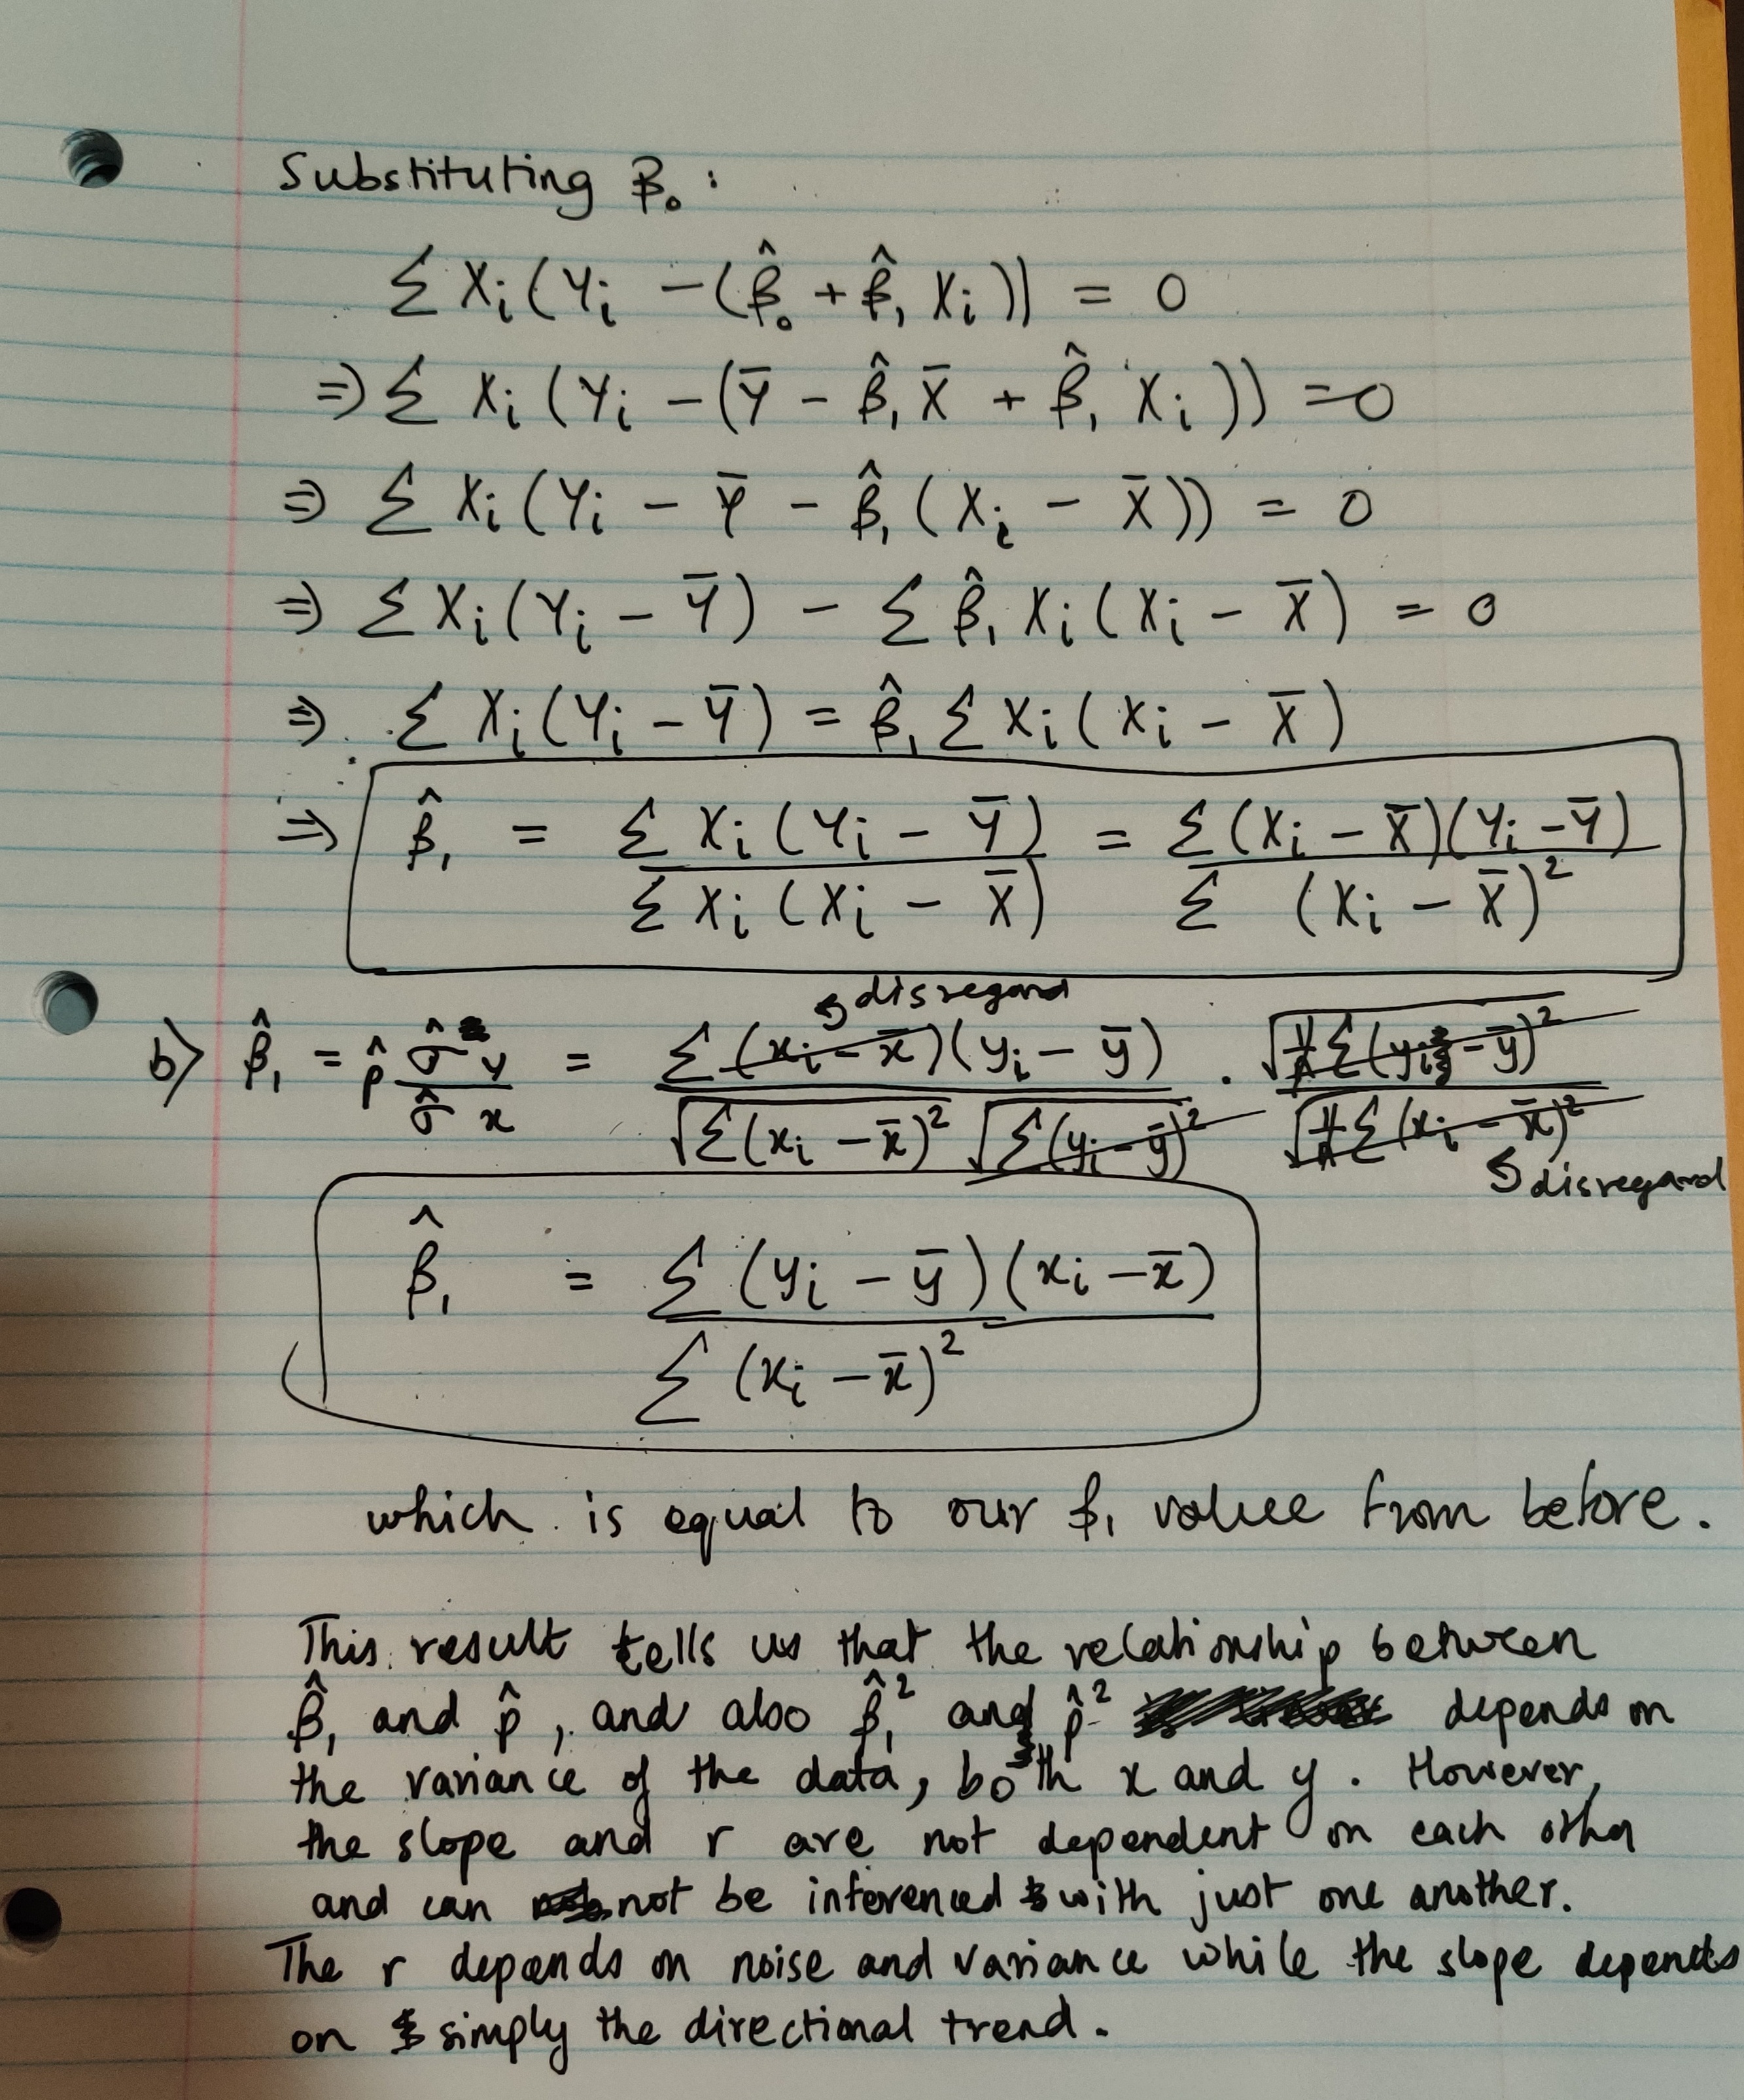 Substituting β₀ :
Σ Xᵢ (Yᵢ − (β̂₀ + β̂₁ Xᵢ)) = 0
⇒ Σ Xᵢ (Yᵢ − (Ȳ − β̂₁ X̄ + β̂₁ Xᵢ)) = 0
⇒ Σ Xᵢ (Yᵢ − Ȳ − β̂₁ (Xᵢ − X̄)) = 0
⇒ Σ Xᵢ (Yᵢ − Ȳ) − Σ β̂₁ Xᵢ (Xᵢ − X̄) = 0
⇒ Σ Xᵢ (Yᵢ − Ȳ) = β̂₁ Σ Xᵢ (Xᵢ − X̄)
⇒ β̂₁ = Σ Xᵢ (Yᵢ − Ȳ) / Σ Xᵢ (Xᵢ − X̄) = Σ (Xᵢ − X̄)(Yᵢ − Ȳ) / Σ (Xᵢ − X̄)²
disregard
b) β̂₁ = ρ̂ σ̂y / σ̂x = Σ (xᵢ − x̄)(yᵢ − ȳ) / √Σ(xᵢ − x̄)² √Σ(yᵢ − ȳ)² · √1/n Σ(yᵢ − ȳ)² / √1/n Σ(xᵢ − x̄)²
disregard
β̂₁ = Σ (yᵢ − ȳ)(xᵢ − x̄) / Σ (xᵢ − x̄)²
which is equal to our β₁ value from before.
This result tells us that the relationship between
β̂₁ and ρ̂, and also β̂₁² and ρ̂² depends on
the variance of the data, both x and y. However,
the slope and r are not dependent on each other
and can not be inferenced with just one another.
The r depends on noise and variance while the slope depends
on simply the directional trend.